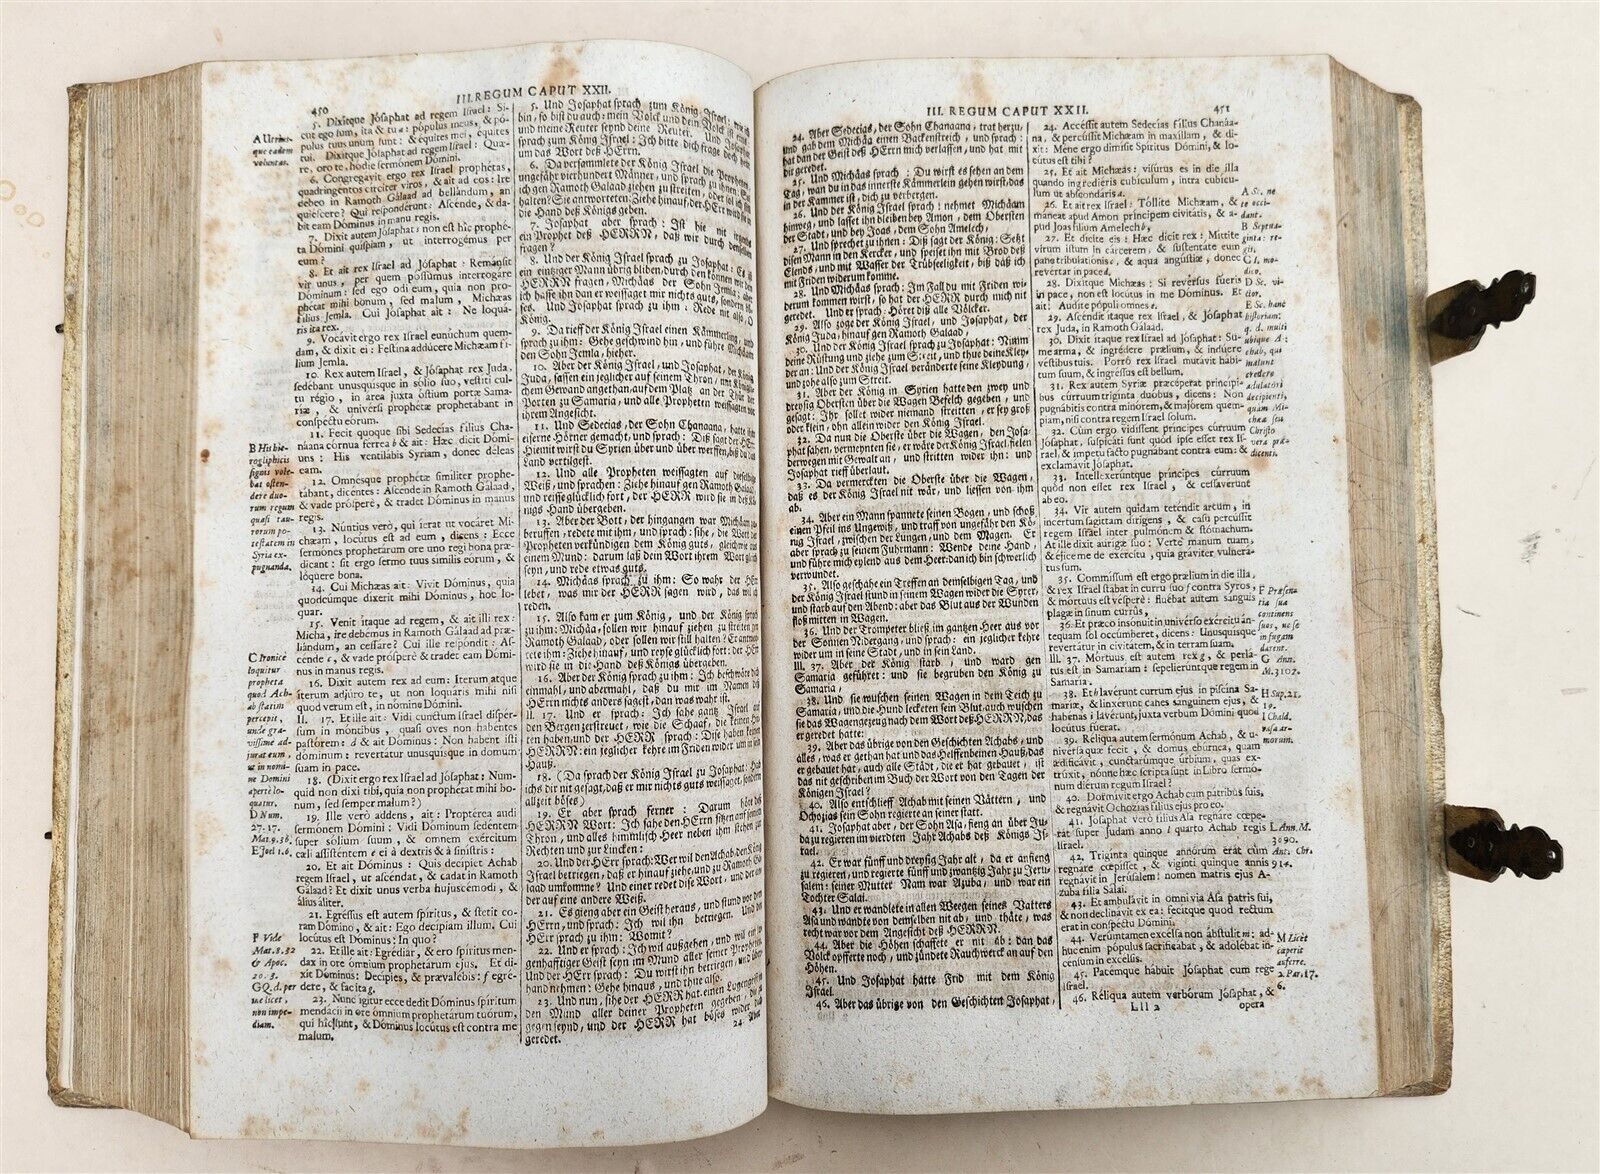 450
III. REGUM CAPUT XXII.
5. Dixitque Jósaphat ad regem Iſrael: Si-
cut ego ſum, ita & tu a: pópulus meus, & pó-
pulus tuus unum ſunt: & équites mei, équites
tui. Dixitque Jóſaphat ad regem Iſrael: Quæ-
re, oro te, hodie ſermónem Dómini.
6. Congregávit ergo rex Iſrael prophétas,
quadringéntos círciter viros, & ait ad eos: Ire
debeo in Ramoth Gálaad ad bellándum, an
quiéſcere? Qui reſpondérunt: Aſcende, & da-
bit eam Dóminus in manu regis.
7. Dixit autem Jóſaphat: non eſt hîc prophé-
ta Dómini quíſpiam, ut interrogémus per
eum?
8. Et ait rex Iſrael ad Jóſaphat: Remánſit
vir unus, per quem póſſumus interrogáre
Dóminum: ſed ego odi eum, quia non pro-
phétat mihi bonum, ſed malum, Michæas
filius Jemla. Cui Jóſaphat ait: Ne loquá-
ris ita rex.
9. Vocávit ergo rex Iſrael eunúchum quem-
dam, & dixit ei: Feſtína addúcere Michæam fí-
lium Jemla.
10. Rex autem Iſrael, & Jóſaphat rex Juda,
ſedébant unuſquisque in ſólio ſuo, veſtíti cul-
tu régio, in área juxta óſtium portæ Sama-
riæ, & univérſi prophétæ prophetábant in
conſpéctu eórum.
11. Fecit quoque ſibi Sedecías fílius Cha-
náana córnua férrea b & ait: Hæc dicit Dómi-
nus: His ventilábis Syriam, donec déleas
eam.
12. Omnésque prophétæ simíliter prophe-
tábant, dicentes: Aſcende in Ramoth Gálaad,
& vade próſpere, & tradet Dóminus in manus
regis.
13. Núntius verò, qui íerat ut vocáret Mi-
chæam, locútus eſt ad eum, dicens: Ecce
ſermónes prophetárum ore uno regi bona præ-
dicant: ſit ergo ſermo tuus símilis eórum, &
lóquere bona.
14. Cui Michæas ait: Vivit Dóminus, quia
quodcúmque díxerit mihi Dóminus, hoc lo-
quar.
15. Venit itaque ad regem, & ait illi rex:
Micha, ire debémus in Ramoth Gálaad ad præ-
liándum, an ceſſáre? Cui ille reſpóndit: Aſ-
cende c, & vade próſperè & tradet eam Dómi-
nus in manus regis.
16. Dixit autem rex ad eum: Iterum atque
íterum adjúro te, ut non loquáris mihi niſi
quod verum eſt, in nómine Dómini.
II. 17. Et ille ait: Vidi cunctum Iſrael diſpér-
ſum in móntibus, quaſi oves non habéntes
paſtórem: d & ait Dóminus: Non habent iſti
dóminum: revertátur unuſquiſque in domum
ſuam in pace.
18. (Dixit ergo rex Iſrael ad Jóſaphat: Num-
quid non dixi tibi, quia non prophétat mihi bo-
num, ſed ſemper malum?)
19. Ille verò addens, ait: Proptérea audi
ſermónem Dómini: Vidi Dóminum ſedéntem
ſuper ſólium ſuum, & omnem exércitum
cæli aſſiſténtem e ei à dextris & à siníſtris:
20. Et ait Dóminus: Quis decípiet Achab
regem Iſrael, ut aſcéndat, & cadat in Ramoth
Gálaad? Et dixit unus verba hujuſcémodi, &
álius áliter.
21. Egreſſus eſt autem ſpíritus, & ſtetit co-
ram Dómino, & ait: Ego decípiam illum. Cui
locútus eſt Dóminus: In quo?
22. Et ille ait: Egrédiar, & ero ſpíritus men-
dax in ore ómnium prophetárum ejus. Et di-
xit Dóminus: Decípies, & prævalébis: f egré-
dere, & facita g.
23. Nunc ígitur ecce dedit Dóminus ſpíritum
mendácii in ore ómnium prophetárum tuórum,
qui hîc ſunt, & Dóminus locútus eſt contra me
malum.
A Utrius-
que eadem
voluntas.
B His hie-
roglyphicis
ſignis vole-
bat oſten-
dere duo-
rum regum
quaſi tau-
rorum po-
teſtatem in
Syria ex-
pugnanda.
C Ironicè
loquitur
propheta
quod Ach-
ab ſtatim
percepit,
unde gra-
viſſime ad-
jurat eum,
ut in nomi-
ne Domini
apertè lo-
quatur.
D Num.
27. 17.
Mat. 9. 36.
E Joel 1. 6.
F Vide
Mat. 8. 32
& Apoc.
20. 3.
G Q. d. per
me licet,
non impe-
diam.
5. Und Joſaphat ſprach zum König Iſrael: wie ich
bin, ſo biſt du auch: mein Volck und dein Volck iſt eins,
und meine Reuter ſeynd deine Reuter.
zum König Iſrael: Ich bitte dich frage doch heut
um das Wort deß HErrn.
6. Da verſammlete der König Iſrael die Propheten,
ungefähr vierhundert Männer, und ſprach zu ihnen: Soll
ich gen Ramoth Galaad ziehen zu ſtreiten, oder ſol ich ſtill
halten? Sie antworteten: Ziehe hinauf, der HErr wird ſie in
die Hand deß Königs geben.
7. Joſaphat aber ſprach: Iſt hie nit irgends
ein Prophet deß HERRN, daß wir durch denſelben
fragen?
8. Und der König Iſrael ſprach zu Joſaphat: Es iſt
ein eintziger Mann übrig bliben, durch den können wir den
HERRN fragen, Michäas der Sohn Jemla: aber
ich haſſe ihn dan er weiſſaget mir nichts guts, ſondern bö-
ſes. Und Joſaphat ſprach zu ihm: Rede nit alſo, O
König.
9. Da rieff der König Iſrael einen Kämmerling, und
ſprach zu ihm: Gehe geſchwind hin, und führe Michäam
den Sohn Jemla, hieher.
10. Aber der König Iſrael, und Joſaphat, der König
Juda, ſaſſen ein jeglicher auf ſeinem Thron, mit Königli-
chem Gewand angethan, auf dem Platz an der Thür der
Porten zu Samaria, und alle Propheten weiſſagten vor
ihrem Angeſicht.
11. Und Sedecias, der Sohn Chanaana, hatte ihm
eiſerne Hörner gemacht, und ſprach: Diß ſagt der HErr
Hiemit wirſt du Syrien über und über werffen, biß du das
Land vertilgeſt.
12. Und alle Propheten weiſſagten auf dieſelbige
Weiß, und ſprachen: Ziehe hinauf gen Ramoth Galaad,
und reiſe glücklich fort, der HERR wird ſie in deß Kö-
nigs Hand übergeben.
13. Aber der Bott, der hingangen war Michäam zu
beruffen, redete mit ihm, und ſprach: ſihe, die Wort der
Propheten verkündigen dem König guts, gleich wie aus
einem Mund: darum laß dein Wort ihrem gleich
ſeyn, und rede etwas guts.
14. Michäas ſprach zu ihm: So wahr der HErr
lebet, was mir der HERR ſagen wird, das wil ich
reden.
15. Alſo kam er zum König, und der König ſprach
zu ihm: Michäa, ſollen wir hinauf ziehen zu ſtreiten gen
Ramoth Galaad, oder ſollen wir ſtill halten? Er antwor-
tete ihm: Ziehe hinauf, und reyſe glücklich fort: der HErr
wird ſie in die Hand deß Königs übergeben.
16. Aber der König ſprach zu ihm: Ich beſchwöre dich
einmahl, und abermahl, daß du mir im Namen deß
HErrn nichts anders ſageſt, dan was wahr iſt.
II. 17. Und er ſprach: Ich ſahe gantz Iſrael auf
den Bergen zerſtreuet, wie die Schaaf, die keinen Hir-
ten haben: und der HERR ſprach: Diſe haben keinen
HERRN: ein jeglicher kehre im Friden wider um in ſein
Hauß.
18. (Da ſprach der König Iſrael zu Joſaphat: Hab
ichs dir nit geſagt, daß er mir nichts guts weiſſaget, ſondern
allzeit böſes)
19. Er aber ſprach ferner: Darum höre deß
HERRN Wort: Ich ſahe den HErrn ſitzen auf ſeinem
Thron, und alles himmliſch Heer neben ihm ſtehen zur
Rechten und zur Lincken:
20. Und der HErr ſprach: Wer wil den Achab den König
Iſrael betriegen, daß er hinauf ziehe, und zu Ramoth Ga-
laad umkomme? Und einer redet diſe Wort, und der an-
der auf eine andere Weiß.
21. Es gieng aber ein Geiſt heraus, und ſtund vor dem
HErrn, und ſprach: Ich wil ihn betriegen. Und der
HErr ſprach zu ihm: Womit?
22. Und er ſprach: Ich wil außgehen, und wil ein lu-
genhafftiger Geiſt ſeyn im Mund aller ſeiner Propheten.
Und der HErr ſprach: Du wirſt ihn betriegen, und über-
hand nehmen: Gehe hinaus, und thue alſo.
23. Und nun, ſihe der HERR hat einen Lugengeiſt in
den Mund aller deiner Propheten gegeben, die hie
gegen ſeynd, und der HERR hat böſes wider dich
geredet.
24. Aber
III. REGUM CAPUT XXII.
451
24. Aber Sedecias, der Sohn Chanaana, trat herzu,
und gab dem Michäa einen Backenſtreich, und ſprach:
hat dan der Geiſt deß HErrn mich verlaſſen, und hat mit
dir geredet.
25. Und Michäas ſprach: Du wirſt es ſehen an dem
Tag, wan du in das innerſte Kämmerlein gehen wirſt, das
in der Kammer iſt, dich zu verbergen.
26. Und der König Iſrael ſprach: nehmet Michäam
hinweg, und laſſet ihn bleiben bey Amon, dem Oberſten
der Stadt, und bey Joas, dem Sohn Amelech,
27. Und ſprechet zu ihnen: Diß ſagt der König: Setzt
diſen Mann in den Kercker, und ſpeiſet ihn mit Brod deß
Elends, und mit Waſſer der Trübſeeligkeit, biß daß ich
mit Friden widerum komme.
28. Und Michäas ſprach: Im Fall du mit Friden wi-
derum kommen wirſt, ſo hat der HERR durch mich nit
geredet. Und er ſprach: Höret diß alle Völcker.
29. Alſo zoge der König Iſrael, und Joſaphat, der
König Juda, hinauf gen Ramoth Galaad,
30. Und der König Iſrael ſprach zu Joſaphat: Nimm
deine Rüſtung und ziehe zum Streit, und thue deine Kley-
der an: Und der König Iſrael veränderte ſeine Kleydung,
und zohe alſo zum Streit.
31. Aber der König in Syrien hatte den zwey und
dreyſig Oberſten über die Wägen Befelch gegeben, und
geſagt: Ihr ſollet wider niemand ſtreitten, er ſey groß
oder klein, ohn allein wider den König Iſrael.
32. Da nun die Oberſte über die Wägen, den Joſa-
phat ſahen, vermeynten ſie, er wäre der König Iſrael, fielen
derwegen mit Gewalt an, und ſtritten wider ihn: und
Joſaphat rieff überlaut.
33. Da vermerckten die Oberſte über die Wägen,
daß es der König Iſrael nit wär, und lieſſen von ihm
ab.
34. Aber ein Mann ſpannete ſeinen Bogen, und ſchoß
einen Pfeil ins Ungewiß, und traff von ungefähr den Kö-
nig Iſrael, zwiſchen der Lungen, und dem Magen. Er
aber ſprach zu ſeinem Fuhrmann: Wende deine Hand,
und führe mich eylend aus dem Heer: dan ich bin ſchwerlich
verwundet.
35. Alſo geſchahe ein Treffen an demſelbigen Tag, und
der König Iſrael ſtund in ſeinem Wagen wider die Syrer,
und ſtarb auf den Abend: aber das Blut aus der Wunden
floß mitten in Wagen.
36. Und der Trompeter bließ im gantzen Heer aus vor
der Sonnen Nidergang, und ſprach: ein jeglicher kehre
wider um in ſeine Stadt, und in ſein Land.
III. 37. Aber der König ſtarb, und ward gen
Samaria geführet: und ſie begruben den König zu
Samaria,
38. Und ſie wuſchen ſeinen Wagen in dem Teich zu
Samaria, und die Hund lecketen ſein Blut, auch wuſchen
ſie das Wagengezeug nach dem Wort deß HERRN, das
er geredet hatte:
39. Aber das übrige von den Geſchichten Achabs, und
alles, was er gethan hat und das Helffenbeinen Hauß, das
er gebauet hat, auch alle Städt, die er hat gebauet, iſt
das nit geſchriben im Buch der Wort von den Tagen der
Königen Iſrael?
40. Alſo entſchlieff Achab mit ſeinen Vättern, und
Ochozias ſein Sohn regierte an ſeiner ſtatt.
41. Joſaphat aber, der Sohn Aſa, fieng an über Ju-
da zu regieren im vierdten Jahr Achabs deß Königs Iſ-
rael.
42. Er war fünff und dreyſig Jahr alt, da er anfieng
zu regieren, und regierte fünff und zwantzig Jahr zu Jeru-
ſalem: ſeiner Mutter Nam war Azuba, und war ein
Tochter Salai.
43. Und er wandlete in allen Weegen ſeines Vatters
Aſa und wandte von demſelben nit ab, und thäte, was
recht war vor dem Angeſicht deß HERRN.
44. Aber die Höhen ſchaffete er nit ab: dan das
Volck opfferte noch, und zündete Rauchwerck an auf den
Höhen.
45. Und Joſaphat hatte Frid mit dem König
Iſrael.
46. Aber das übrige von den Geſchichten Joſaphat,
24. Acceſſit autem Sedecías fílius Chanáa-
na, & percuſſit Michæam in maxíllam, & di-
xit: Méne ergo dimíſit Spíritus Dómini, & lo-
cútus eſt tibi?
25. Et ait Michæas: viſúrus es in die illa
quando ingrediéris cubículum, intra cubícu-
lum ut abſcondáris a.
26. Et ait rex Iſrael: Tóllite Michæam, &
máneat apud Amon príncipem civitátis, & a-
pud Joas fílium Amelech b,
27. Et dícite eis: Hæc dicit rex: Míttite
virum iſtum in cárcerem, & ſuſtentáte eum
pane tribulatiónis c, & aqua angúſtiæ, donec
revértar in pace d.
28. Dixitque Michæas: Si revérſus fúeris
in pace, non eſt locútus in me Dóminus. Et
ait: Audíte pópuli omnes e.
29. Aſcéndit itaque rex Iſrael, & Jóſaphat
rex Juda, in Ramoth Gálaad.
30. Dixit itaque rex Iſrael ad Jóſaphat: Su-
me arma, & ingrédere prælium, & indúere
véſtibus tuis. Porrò rex Iſrael mutávit hábi-
tum ſuum, & ingréſſus eſt bellum.
31. Rex autem Syriæ præcéperat princípi-
bus cúrruum trigínta duóbus, dicens: Non
pugnábitis contra minórem, & majórem quem-
piam, niſi contra regem Iſrael ſolum.
32. Cùm ergo vidíſſent príncipes cúrruum
Jóſaphat, ſuſpicáti ſunt quòd ipſe eſſet rex Iſ-
rael, & ímpetu facto pugnábant contra eum: &
exclamávit Jóſaphat.
33. Intellexerúntque príncipes cúrruum
quòd non eſſet rex Iſrael, & ceſſavérunt
ab eo.
34. Vir autem quidam teténdit arcum, in
incértum ſagíttam dírigens, & caſu percúſſit
regem Iſrael inter pulmónem & ſtómachum.
At ille dixit aurígæ ſuo: Verte manum tuam,
& éjice me de exércitu, quia gráviter vulnerá-
tus ſum.
35. Commíſſum eſt ergo prælium in die illa,
& rex Iſrael ſtabat in curru ſuo f contra Syros,
& mórtuus eſt véſperè: fluébat autem ſanguis
plagæ in ſinum currûs,
36. Et præco inſónuit in univérſo exércitu án-
tequam ſol occúmberet, dicens: Unuſquiſque
revertátur in civitátem, & in terram ſuam,
III. 37. Mórtuus eſt autem rex g, & perlá-
tus eſt in Samaríam: ſepelierúntque regem in
Samaría.
38. Et h lavérunt currum ejus in piſcína Sa-
maríæ, & linxérunt canes ſánguinem ejus, &
habénas i lavérunt, juxta verbum Dómini quod
locútus fúerat.
39. Réliqua autem ſermónum Achab, & u-
nivérſa quæ fecit, & domus ebúrnea, quam
ædificávit, cunctarúmque úrbium, quas ex-
trúxit, nónne hæc ſcripta ſunt in Libro ſermó-
num diérum regum Iſrael?
40. Dormívit ergo Achab cum pátribus ſuis,
& regnávit Ochozías fílius ejus pro eo.
41. Jóſaphat verò fílius Aſa regnáre cœpe-
rat ſuper Judam anno l quarto Achab regis
Iſrael.
42. Trigínta quinque annórum erat cùm
regnáre cœpíſſet, & vigínti quinque annis
regnávit in Jerúſalem: nomen matris ejus A-
zuba fília Sálai.
43. Et ambulávit in omni via Aſa patris ſui,
& non declinávit ex ea: fecítque quod rectum
erat in conſpéctu Dómini.
44. Verúmtamen excélſa non ábſtulit m: ad-
huc enim pópulus ſacrificábat, & adolébat in-
cénſum in excélſis.
45. Pacémque hábuit Jóſaphat cum rege
Iſrael.
46. Réliqua autem verbórum Jóſaphat, &
Lll 2
opera
A Sc. ne
te occi-
dant.
B Septua-
ginta: re-
gis.
C I. mo-
dico.
D Sc. vi-
ctor.
E Sc. hanc
hiſtoriam:
q. d. multi
ubique A-
chab, qui
malunt
credere
adulatori
decipienti,
quam Mi-
chææ ſeu
Chriſto
vera præ-
dicenti.
F Præſen-
tia ſua
continens
ſuos, ne ſe
in fugam
darent.
G Ann.
M. 3107.
H Sup. 21.
19.
I Chald.
vaſa ar-
morum.
L Ann. M.
3090.
Ant. Chr.
914.
M Licet
cœperit
auferre.
2. Par. 17.
6.